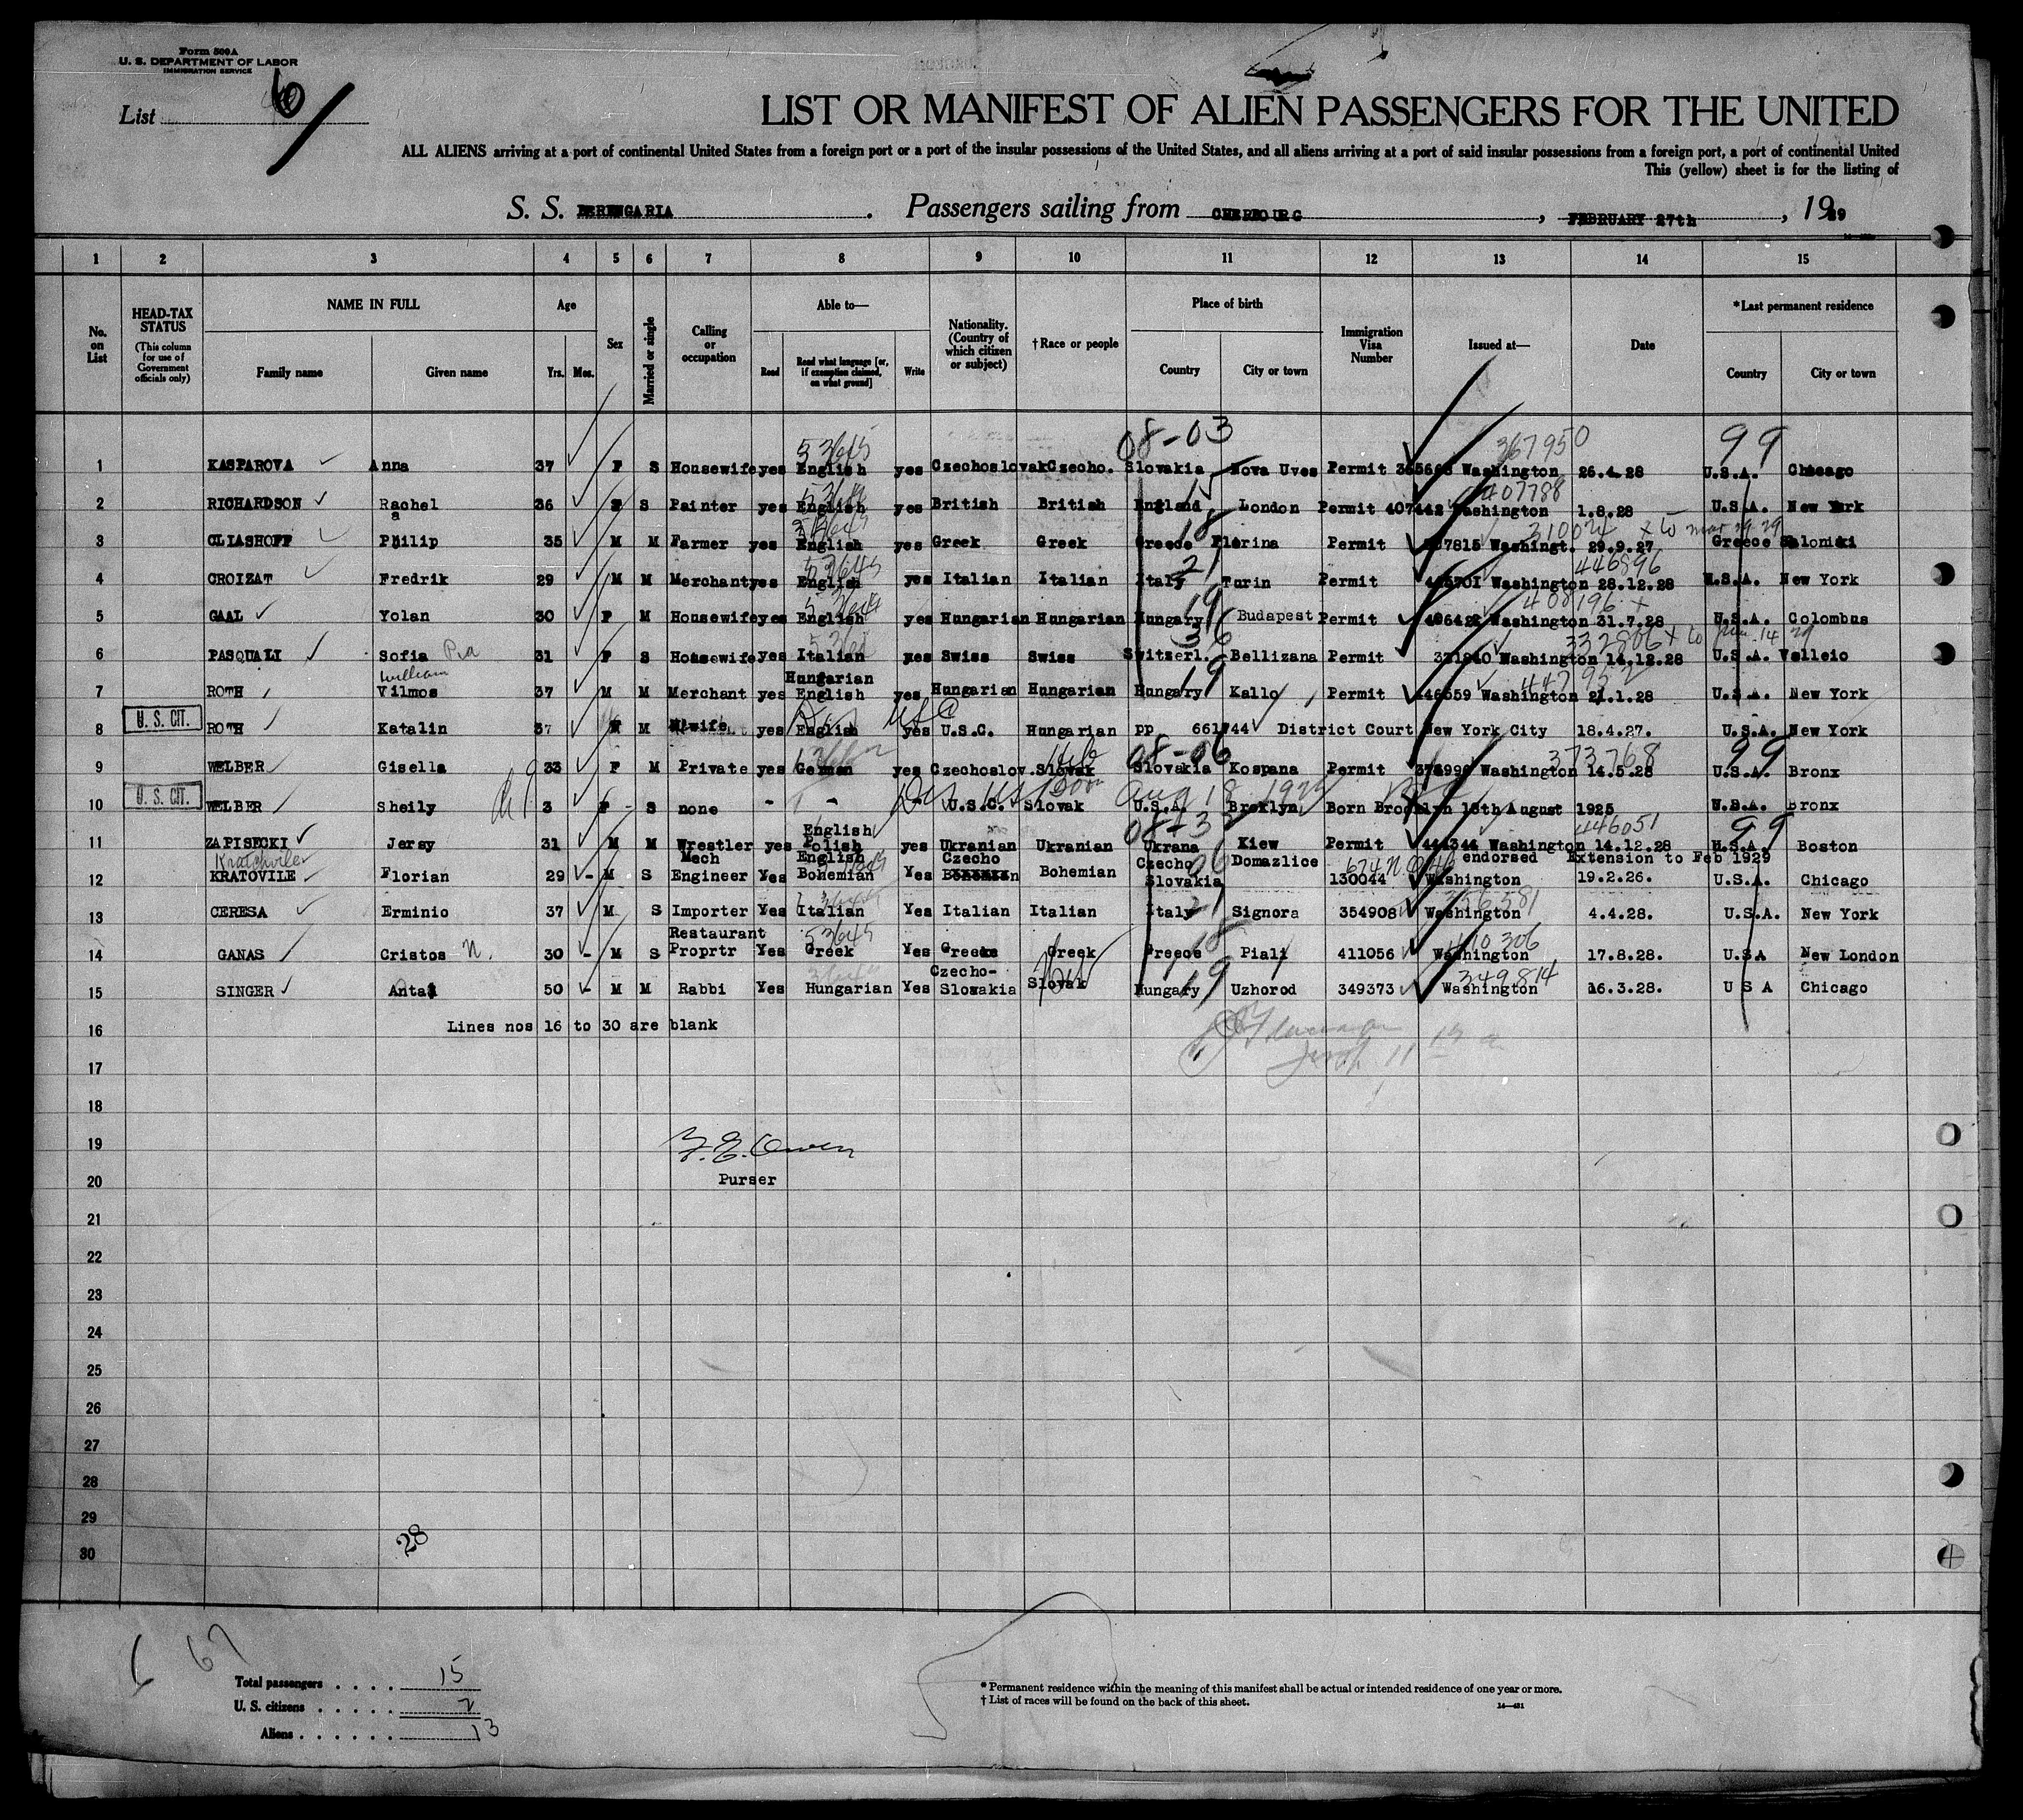 Form 500A
U. S. DEPARTMENT OF LABOR
IMMIGRATION SERVICE
List 6
LIST OR MANIFEST OF ALIEN PASSENGERS FOR THE UNITED
ALL ALIENS arriving at a port of continental United States from a foreign port or a port of the insular possessions of the United States, and all aliens arriving at a port of said insular possessions from a foreign port, a port of continental United
This (yellow) sheet is for the listing of
S. S. BERENGARIA. Passengers sailing from CHERBOURG, FEBRUARY 27th, 1929
1 2 3 4 5 6 7 8 9 10 11 12 13 14 15
No. on List
HEAD-TAX STATUS (This column for use of Government officials only)
NAME IN FULL Family name Given name
Age Yrs. Mos.
Sex
Married or single
Calling or occupation
Able to— Read Read what language [or, if exemption claimed, on what ground] Write
Nationality. (Country of which citizen or subject)
† Race or people
Place of birth Country City or town
Immigration Visa Number
Issued at—
Date
*Last permanent residence Country City or town
08-03 367950 99
1 KASPAROVA Anna 37 F S Housewife yes English yes Czechoslovak Czecho. Slovakia Nova Uves Permit Washington 26.4.28 U.S.A. Chicago
15 407788
2 RICHARDSON Rachel 36 S Painter yes English yes British British England London Permit Washington 1.8.28 U.S.A. New York
18 310024 x to mar 29 29
3 OLIASHOFF Philip 35 M M Farmer yes English yes Greek Greek Greece Florina Permit Washingt. 29.9.27 Greece Salonicki
21 446596
4 CROIZAT Fredrik 29 M M Merchant yes English yes Italian Italian Italy Turin Permit Washington 28.12.28 U.S.A. New York
19 408196 x
5 GAAL Yolan 30 F M Housewife yes English yes Hungarian Hungarian Hungary Budapest Permit Washington 31.7.28 U.S.A. Colombus
36 332806 x to
6 PASQUALI Sofia Pia 31 F S Housewife yes Italian yes Swiss Swiss Switzerl. Bellizana Permit Washington 14.12.28 U.S.A. Valleio
William Hungarian 19
7 ROTH Vilmos 37 M M Merchant yes English yes Hungarian Hungarian Hungary Kallo Permit Washington 21.1.28 U.S.A. New York
U. S. CIT.
8 ROTH Katalin 37 M wife yes English yes U.S.C. Hungarian pp District Court New York City 18.4.27. U.S.A. New York
Heb 08-06 373768 99
9 WELBER Gisella 33 F M Private yes German yes Czechoslov. Slovak Slovakia Kospana Permit Washington 14.5.28 U.S.A. Bronx
U. S. CIT. Aug 18 1925
10 WELBER Sheily 3 F S none - - - U.S.C. Slovak U.S.A. Broklyn Born Brooklyn 18th August 1925 U.S.A. Bronx
English 446051 99
11 ZAPISECKI Jersy 31 M M Wrestler yes Polish yes Ukranian Ukranian Ukrana Kiew Permit Washington 14.12.28 U.S.A. Boston
Mech English Czecho Czecho 06 Domazlice endorsed Extension to Feb 1929
12 KRATOVILE Florian 29 - M S Engineer Yes Bohemian Yes Bohemian Slovakia 130044 Washington 19.2.26. U.S.A. Chicago
21 356581
13 CERESA Erminio 37 M S Importer Yes Italian Yes Italian Italian Italy Signora 354908 Washington 4.4.28. U.S.A. New York
Restaurant 53645 18 410306
14 GANAS Cristos N. 30 - M S Proprtr Yes Greek Yes Greek Greek Greece Piali 411056 Washington 17.8.28. U.S.A New London
Czecho- 19 349814
15 SINGER Antal 50 - M M Rabbi Yes Hungarian Yes Slovakia Slovak Hungary Uzhorod 349373 Washington 16.3.28. U S A Chicago
16 Lines nos 16 to 30 are blank
17
18
19
Purser
20
21
22
23
24
25
26
27
28
29
28
30
67
Total passengers . . . . 15
U. S. citizens . . . . . 2
Aliens . . . . . . 13
* Permanent residence within the meaning of this manifest shall be actual or intended residence of one year or more.
† List of races will be found on the back of this sheet.